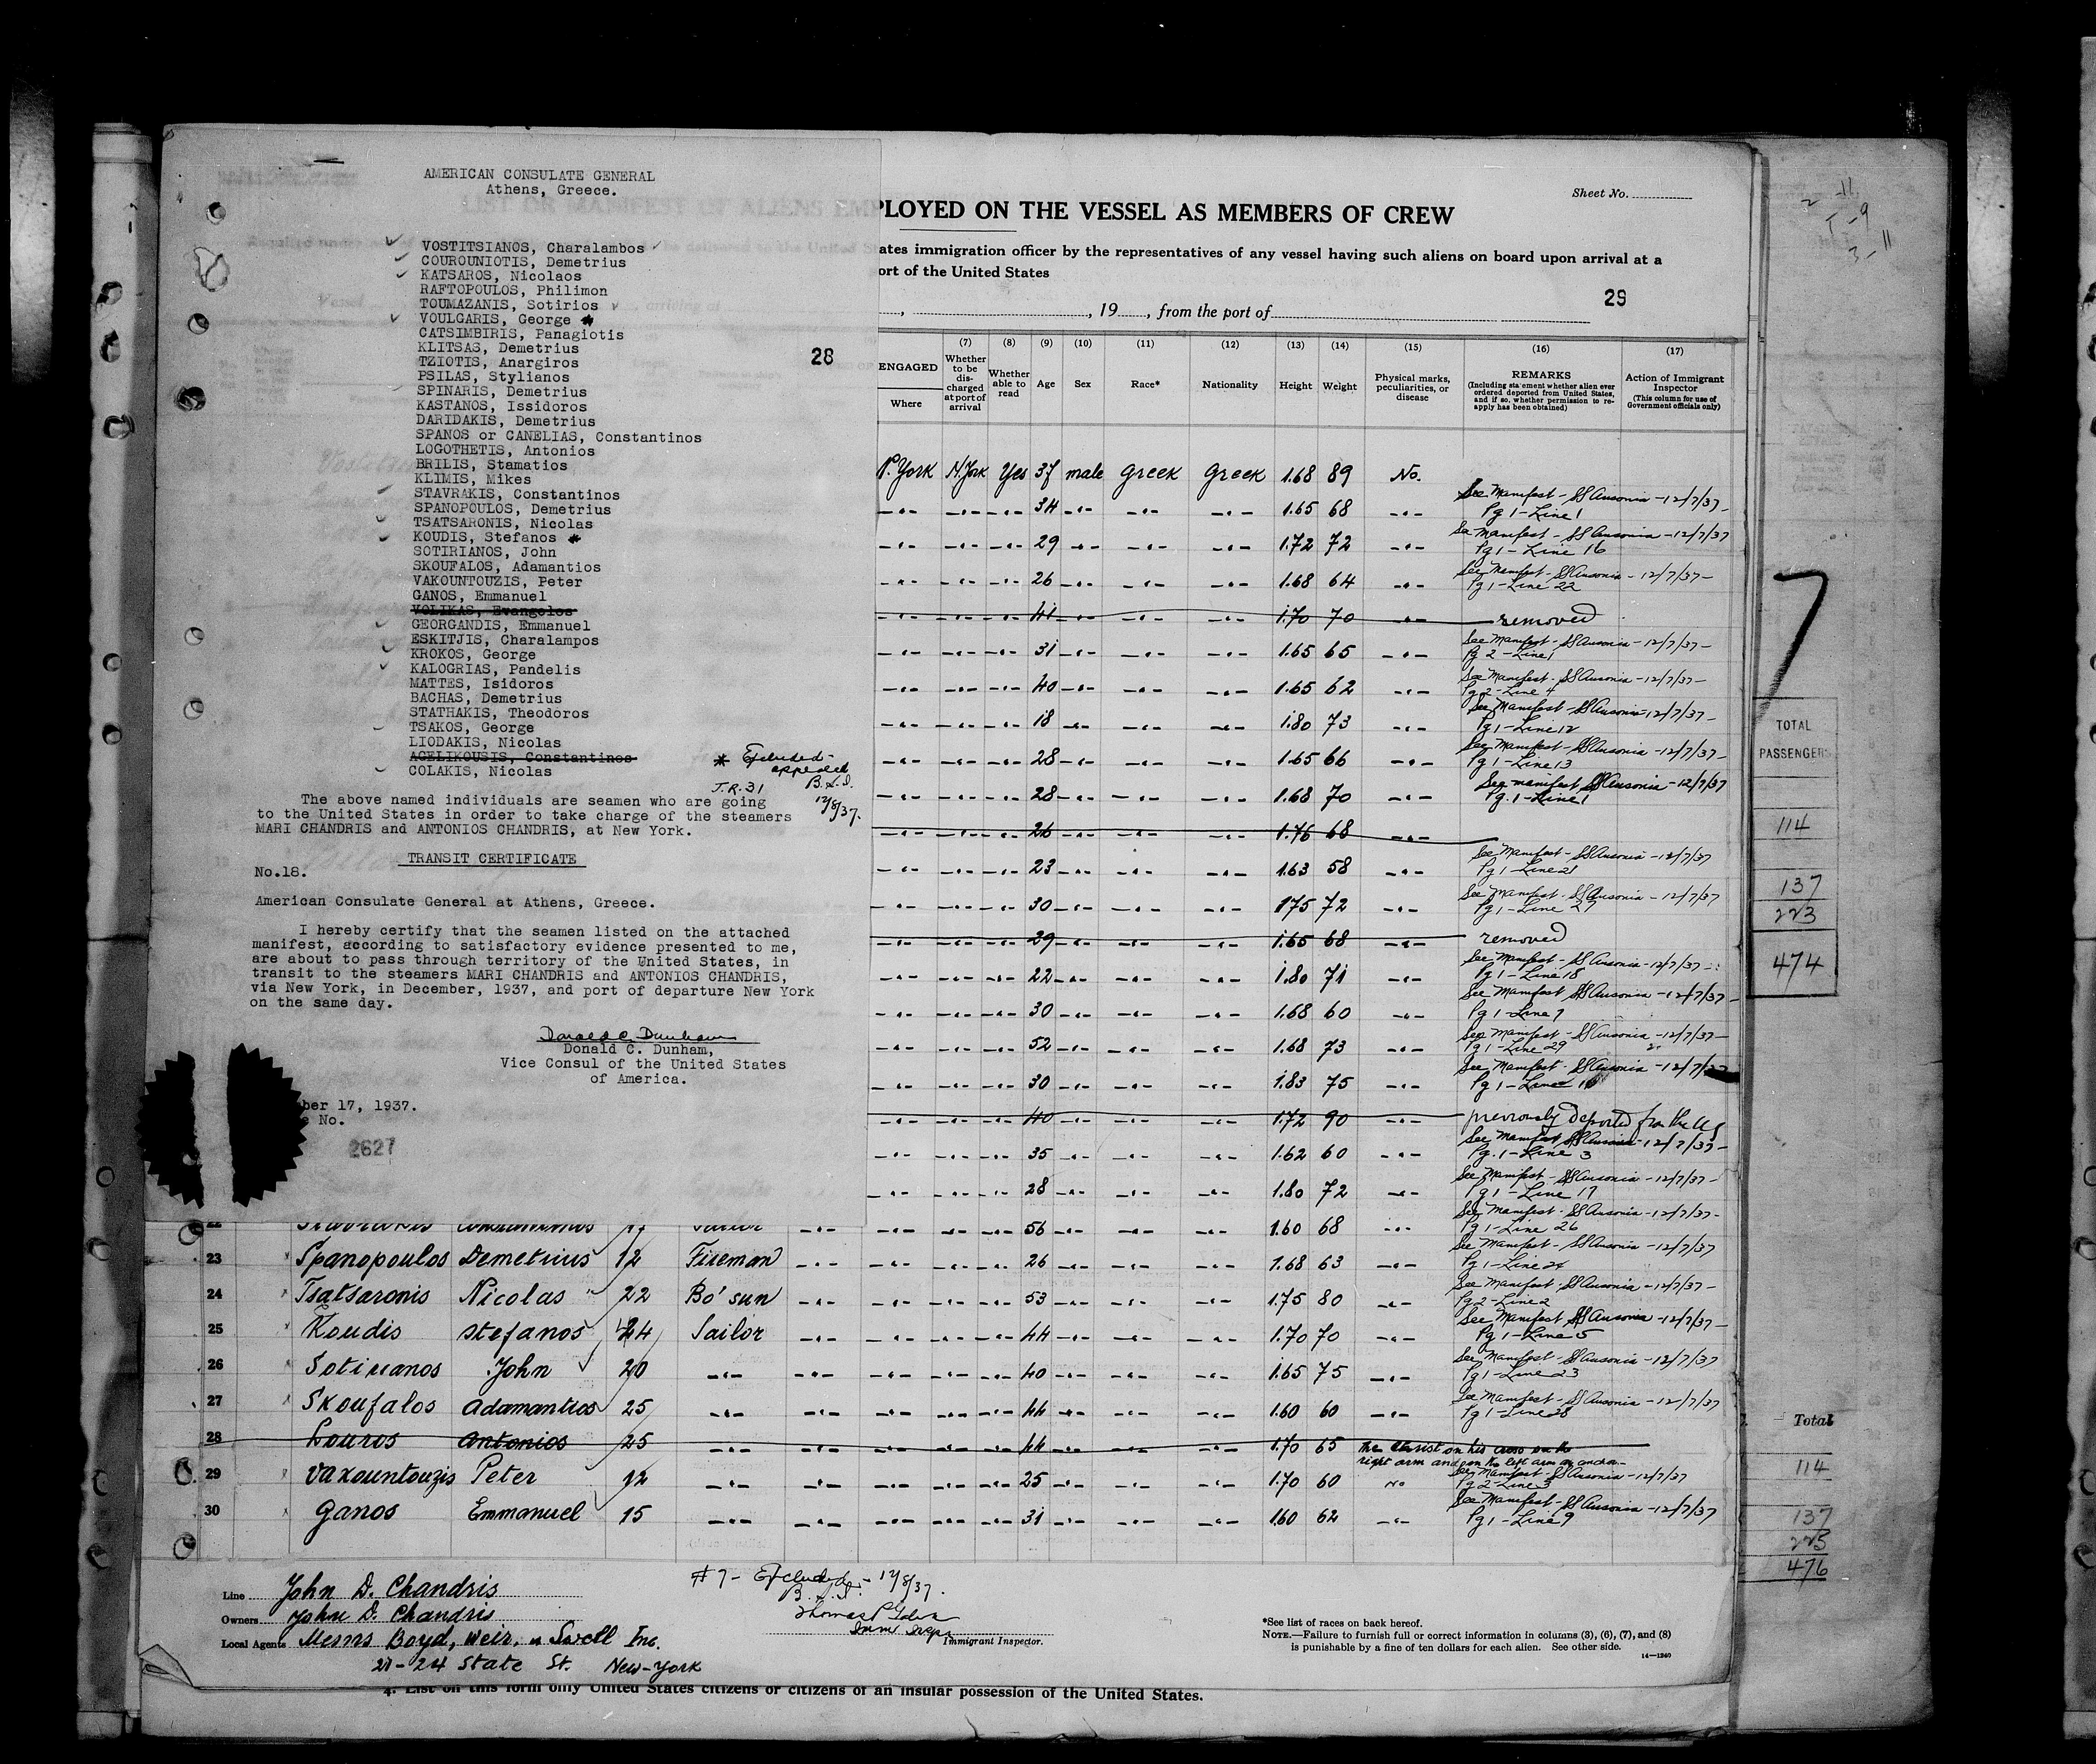 AMERICAN CONSULATE GENERAL
Athens, Greece.
VOSTITSIANOS, Charalambos
COUROUNIOTIS, Demetrius
KATSAROS, Nicolaos
RAFTOPOULOS, Philimon
TOUMAZANIS, Sotirios
VOULGARIS, George *
CATSIMBIRIS, Panagiotis
KLITSAS, Demetrius
TZIOTIS, Anargiros
PSILAS, Stylianos
SPINARIS, Demetrius
KASTANOS, Issidoros
DARIDAKIS, Demetrius
SPANOS or CANELIAS, Constantinos
LOGOTHETIS, Antonios
BRILIS, Stamatios
KLIMIS, Mikes
STAVRAKIS, Constantinos
SPANOPOULOS, Demetrius
TSATSARONIS, Nicolas
KOUDIS, Stefanos *
SOTIRIANOS, John
SKOUFALOS, Adamantios
VAKOUNTOUZIS, Peter
GANOS, Emmanuel
VOLIKAS, Evangelos
GEORGANDIS, Emmanuel
ESKITJIS, Charalampos
KROKOS, George
KALOGRIAS, Pandelis
MATTES, Isidoros
BACHAS, Demetrius
STATHAKIS, Theodoros
TSAKOS, George
LIODAKIS, Nicolas
AGELIKOUSIS, Constantinos
COLAKIS, Nicolas
28
* Excluded-
appealed
J.R. 31 B.S.I.
12/8/37.
The above named individuals are seamen who are going
to the United States in order to take charge of the steamers
MARI CHANDRIS and ANTONIOS CHANDRIS, at New York.
TRANSIT CERTIFICATE
No.18.
American Consulate General at Athens, Greece.
I hereby certify that the seamen listed on the attached
manifest, according to satisfactory evidence presented to me,
are about to pass through territory of the United States, in
transit to the steamers MARI CHANDRIS and ANTONIOS CHANDRIS,
via New York, in December, 1937, and port of departure New York
on the same day.
Donald C. Dunham
Donald C. Dunham,
Vice Consul of the United States
of America.
ber 17, 1937.
No.
2627
Sheet No.
PLOYED ON THE VESSEL AS MEMBERS OF CREW
ates immigration officer by the representatives of any vessel having such aliens on board upon arrival at a
ort of the United States
29
, 19 , from the port of
ENGAGED Where (7) Whether to be discharged at port of arrival (8) Whether able to read (9) Age (10) Sex (11) Race* (12) Nationality (13) Height (14) Weight (15) Physical marks, peculiarities, or disease (16) REMARKS (Including statement whether alien ever ordered deported from United States, and if so, whether permission to reapply has been obtained) (17) Action of Immigrant Inspector (This column for use of Government officials only)
N. York N. York Yes 37 male Greek Greek 1.68 89 No.
34 1.65 68 See Manifest - SS Ausonia - 12/7/37 - Pg 1 - Line 1
29 1.72 72 See Manifest - SS Ausonia - 12/7/37 Pg 1 - Line 16
26 1.68 64 See Manifest - SS Ausonia - 12/7/37 - Pg 1 - Line 22
41 1.70 70 removed
31 1.65 65 See Manifest - SS Ausonia - 12/7/37 - Pg 2 - Line 1
40 1.65 62 See Manifest - SS Ausonia - 12/7/37 - Pg 2 - Line 4
18 1.80 73 See Manifest - SS Ausonia - 12/7/37 - Pg 1 - Line 12
28 1.65 66 See Manifest - SS Ausonia - 12/7/37 - Pg 1 - Line 13
28 1.68 70 See manifest SS Ausonia - 12/7/37 Pg. 1 - Line 1
26 1.76 68
23 1.63 58 See Manifest - SS Ausonia - 12/7/37 Pg 1 - Line 21
30 175 72 See Manifest - SS Ausonia - 12/7/37 Pg 1 - Line 27
29 1.65 68 removed
22 1.80 71 See Manifest - SS Ausonia - 12/7/37 - Pg 1 - Line 18
30 1.68 60 See Manifest SS Ausonia - 12/7/37 - Pg 1 - Line 7
52 1.68 73 See Manifest - SS Ausonia - 12/7/37 - Pg 1 - Line 29
30 1.83 75 See Manifest - SS Ausonia - 12/7/37 Pg 1 - Line
40 1.72 90 previously deported from the US
35 1.62 60 See Manifest SS Ausonia - 12/7/37 - Pg. 1 - Line 3
28 1.80 72 See Manifest - SS Ausonia - 12/7/37 - Pg 1 - Line 17
22 Stavrakis Constantinos Sailor 56 1.60 68 See Manifest - SS Ausonia - 12/7/37 - Pg 1 - Line 26
23 Spanopoulos Demetrius 12 Fireman 26 1.68 63 See Manifest - SS Ausonia - 12/7/37 Pg 1 - Line 24
24 Tsatsaronis Nicolas 22 Bo'sun 53 1.75 80 See Manifest - SS Ausonia - 12/7/37 - Pg 2 - Line 2
25 Koudis Stefanos 24 Sailor 44 1.70 70 See Manifest SS Ausonia - 12/7/37 - Pg 1 - Line 5
26 Sotirianos John 20 40 1.65 75 See Manifest - SS Ausonia - 12/7/37 Pg 1 - Line 23
27 Skoufalos Adamantios 25 44 1.60 60 See Manifest - SS Ausonia - 12/7/37 Pg 1 - Line 28
28 Louros Antonios 25 44 1.70 65 the Christ on his cross on the right arm and on the left arm an anchor
29 Vakountouzis Peter 12 25 1.70 60 No See Manifest - SS Ausonia - 12/7/37 Pg 2 - Line 3
30 Ganos Emmanuel 15 31 1.60 62 See Manifest - SS Ausonia - 12/7/37 Pg 1 - Line 9
Line John D. Chandris
Owners John D. Chandris
Local Agents Messrs Boyd, Weir, & Sewell Inc.
21-24 State St. New-York
#7 - Excluded - 12/8/37.
B.S.I.
Immigrant Inspector.
*See list of races on back hereof.
NOTE.—Failure to furnish full or correct information in columns (3), (6), (7), and (8)
is punishable by a fine of ten dollars for each alien. See other side.
14—1240
4. List on this form only United States citizens or citizens of an insular possession of the United States.
7
TOTAL
PASSENGERS
114
137
223
474
Total
114
137
225
476